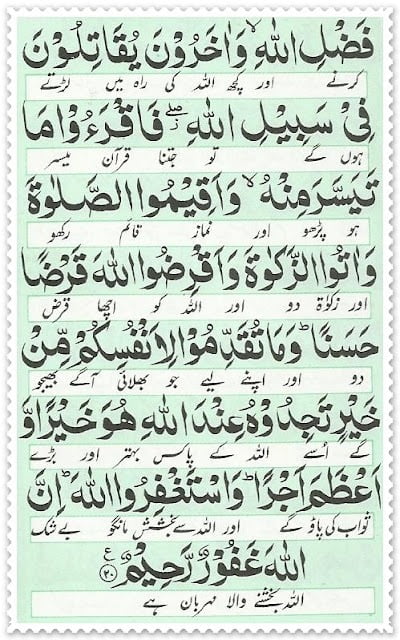 فَضْلِ اللهِ ۙ وَاٰخَرُوْنَ يُقَاتِلُوْنَ
کرنے اور کچھ اللہ کی راہ میں لڑتے
فِىْ سَبِيْلِ اللهِ ۖ فَاقْرَءُوْا مَا
ہوں گے تو جتنا قرآن میسر
تَيَسَّرَ مِنْهُ ۙ وَاَقِيْمُوا الصَّلٰوةَ
ہو پڑھو اور نماز قائم رکھو
وَاٰتُوا الزَّكٰوةَ وَاَقْرِضُوا اللهَ قَرْضًا
اور زکوٰۃ دو اور اللہ کو اچھا قرض
حَسَنًا ؕ وَمَا تُقَدِّمُوْا لِاَنْفُسِكُمْ مِّنْ
دو اور اپنے لیے جو بھلائی آگے بھیجو
خَيْرٍ تَجِدُوْهُ عِنْدَ اللهِ هُوَ خَيْرًا وَّ
گے اُسے اللہ کے پاس بہتر اور بڑے
اَعْظَمَ اَجْرًا ؕ وَاسْتَغْفِرُوا اللهَ ؕ اِنَّ
ثواب کی پاؤ گے اور اللہ سے بخشش مانگو بے شک
اللهَ غَفُوْرٌ رَّحِيْمٌ ۟ ع ۲۰
اللہ بخشنے والا مہربان ہے